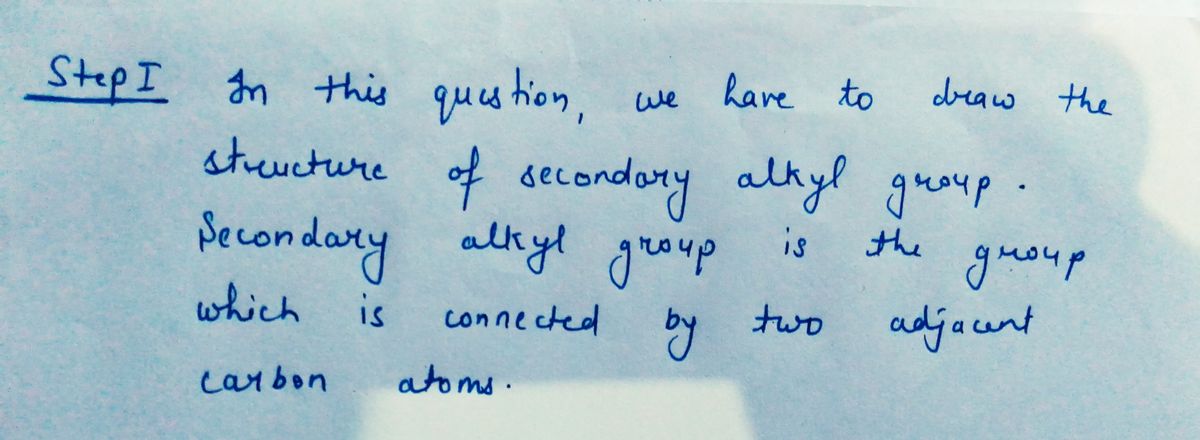 Step I In this question, we have to draw the
structure of secondary alkyl group.
Secondary alkyl group is the group
which is connected by two adjacent
carbon atoms.